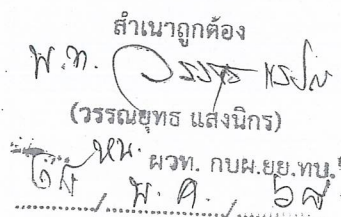 สำเนาถูกต้อง
พ.ท.
(วรรณยุทธ แสงนิกร)
หน. ผวท. กบผ.ยย.ทบ.
/ พ.ค. / ๖๘